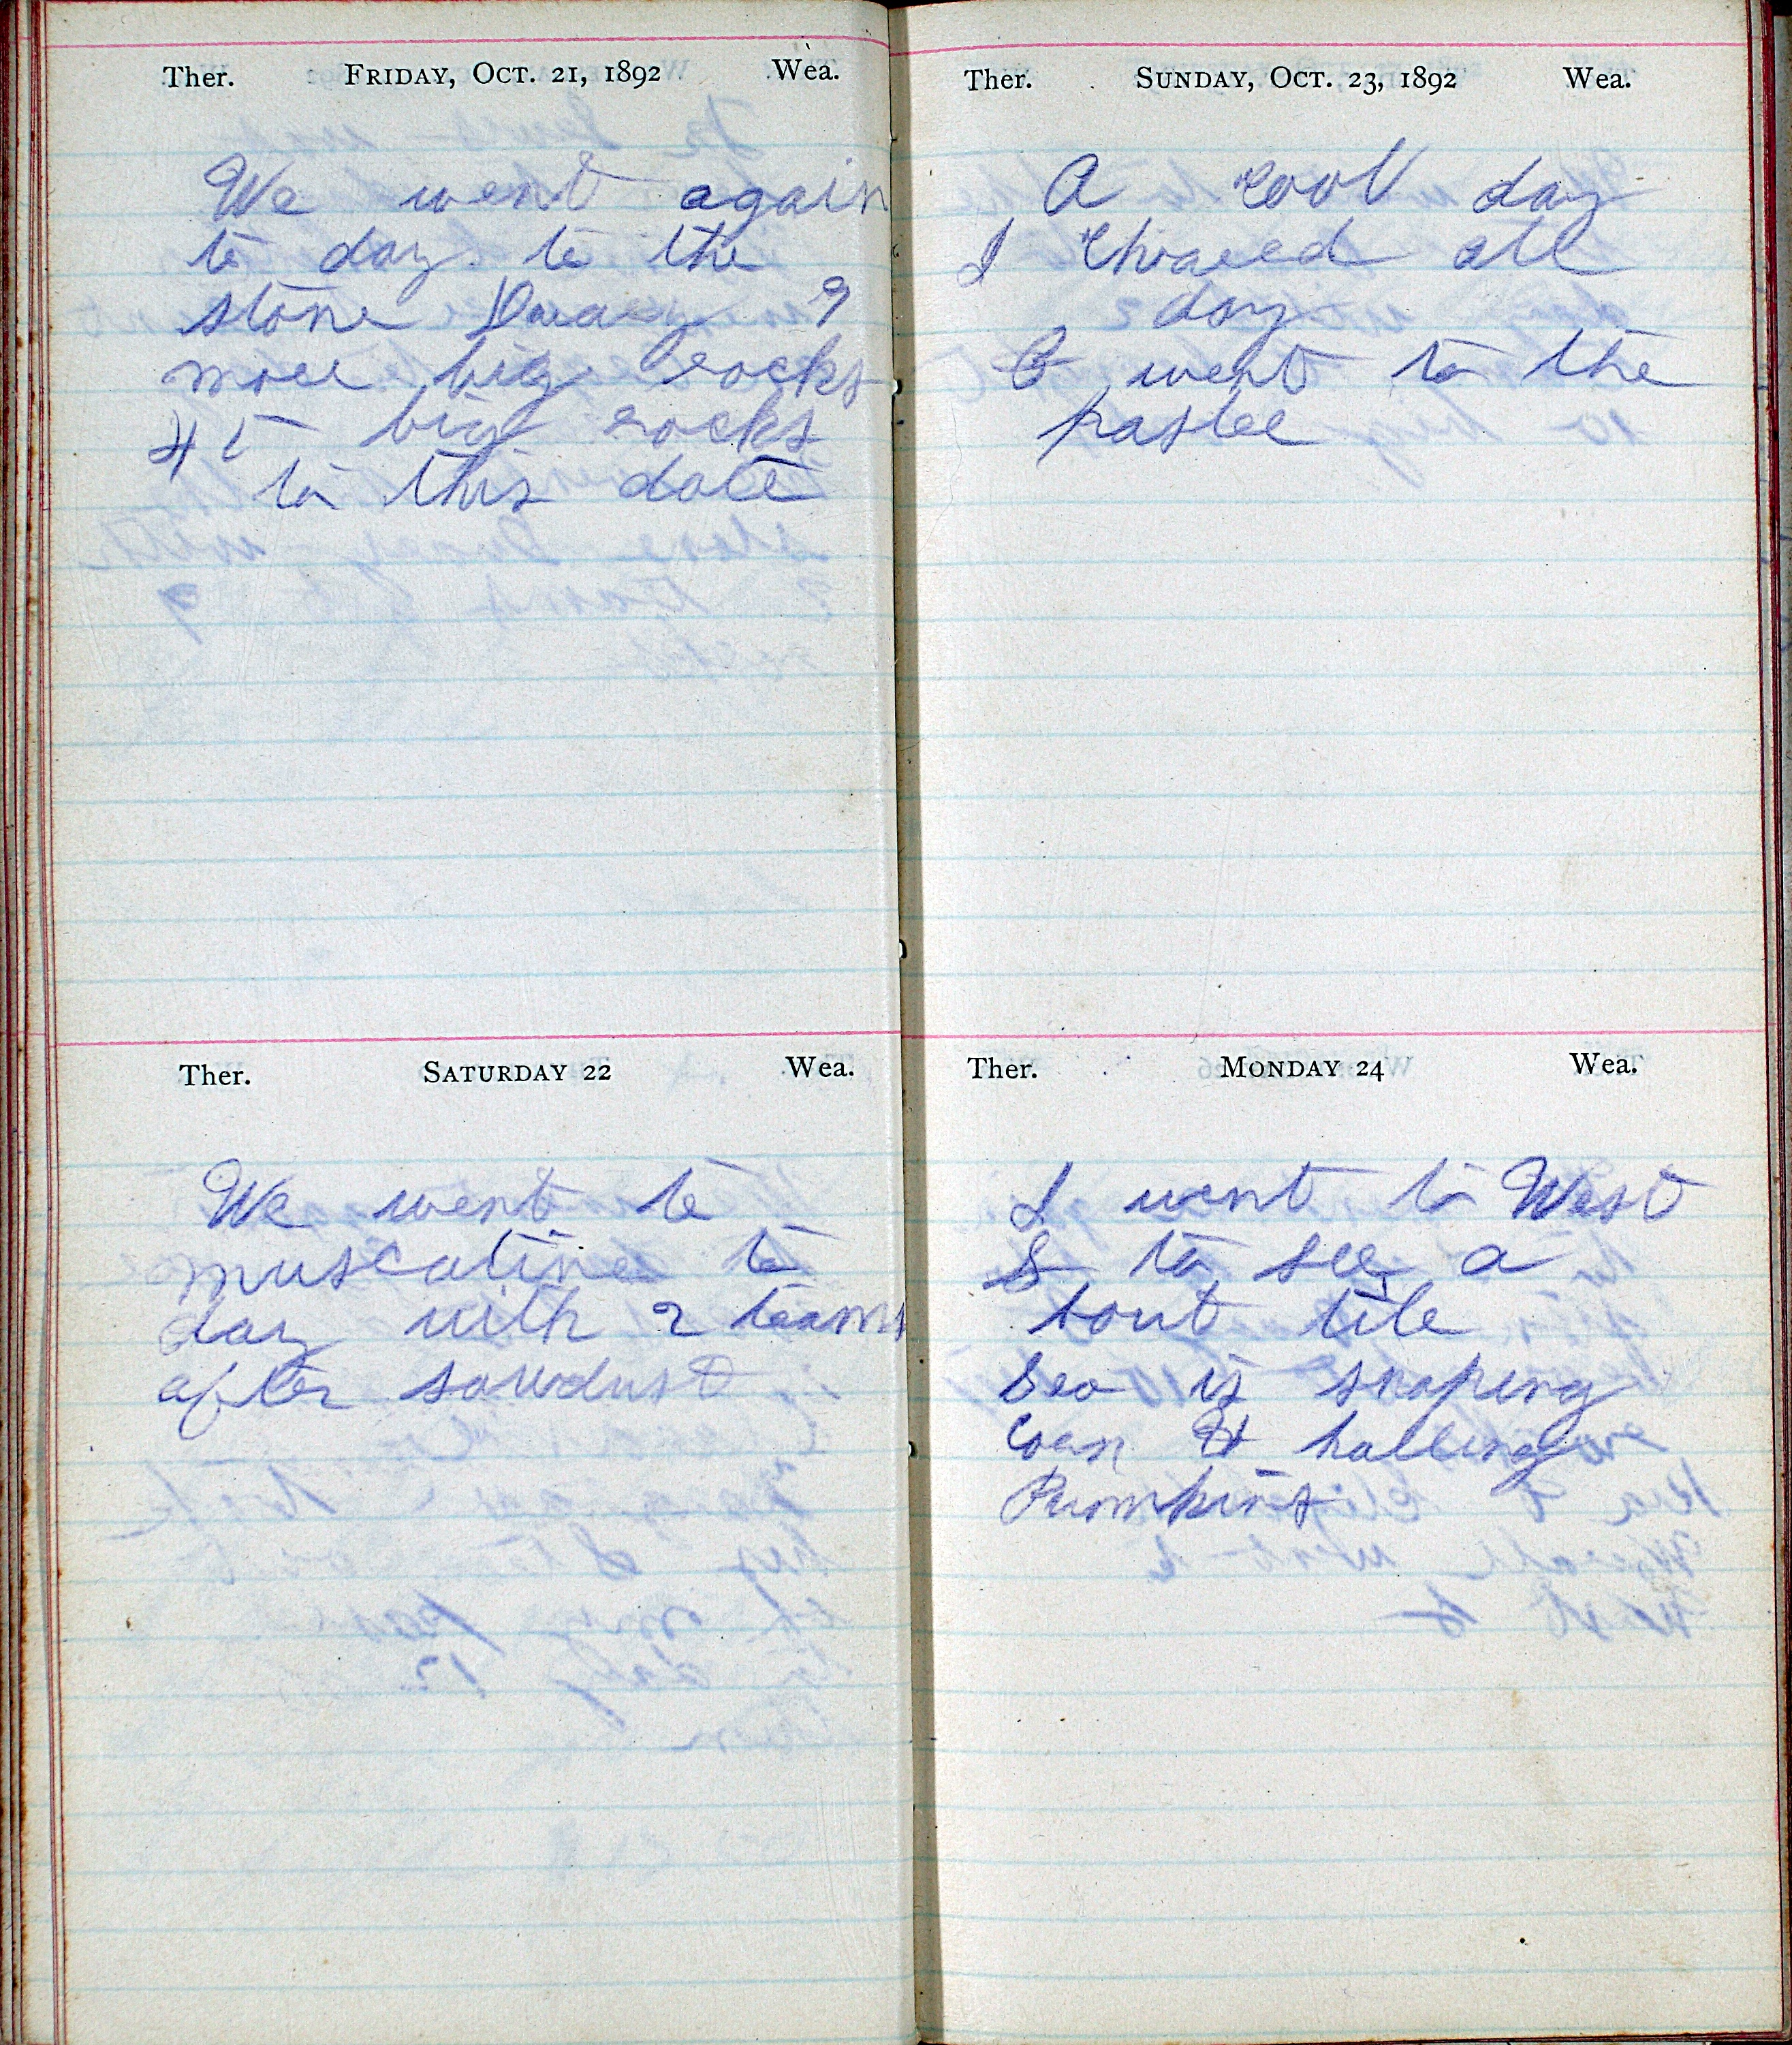 Ther. FRIDAY, OCT. 21, 1892 Wea.
We went again
to day to the
stone 9
more big rocks
45 big rocks
to this date
Ther. SATURDAY 22 Wea.
We went to
muscatine to
day with 2 teams
after sawdust
Ther. SUNDAY, OCT. 23, 1892 Wea.
A cool day
I all
day
went to the
Ther. MONDAY 24 Wea.
I went to West
to see a
bout tile
Geo is snaping
Corn & halling
Pumkins